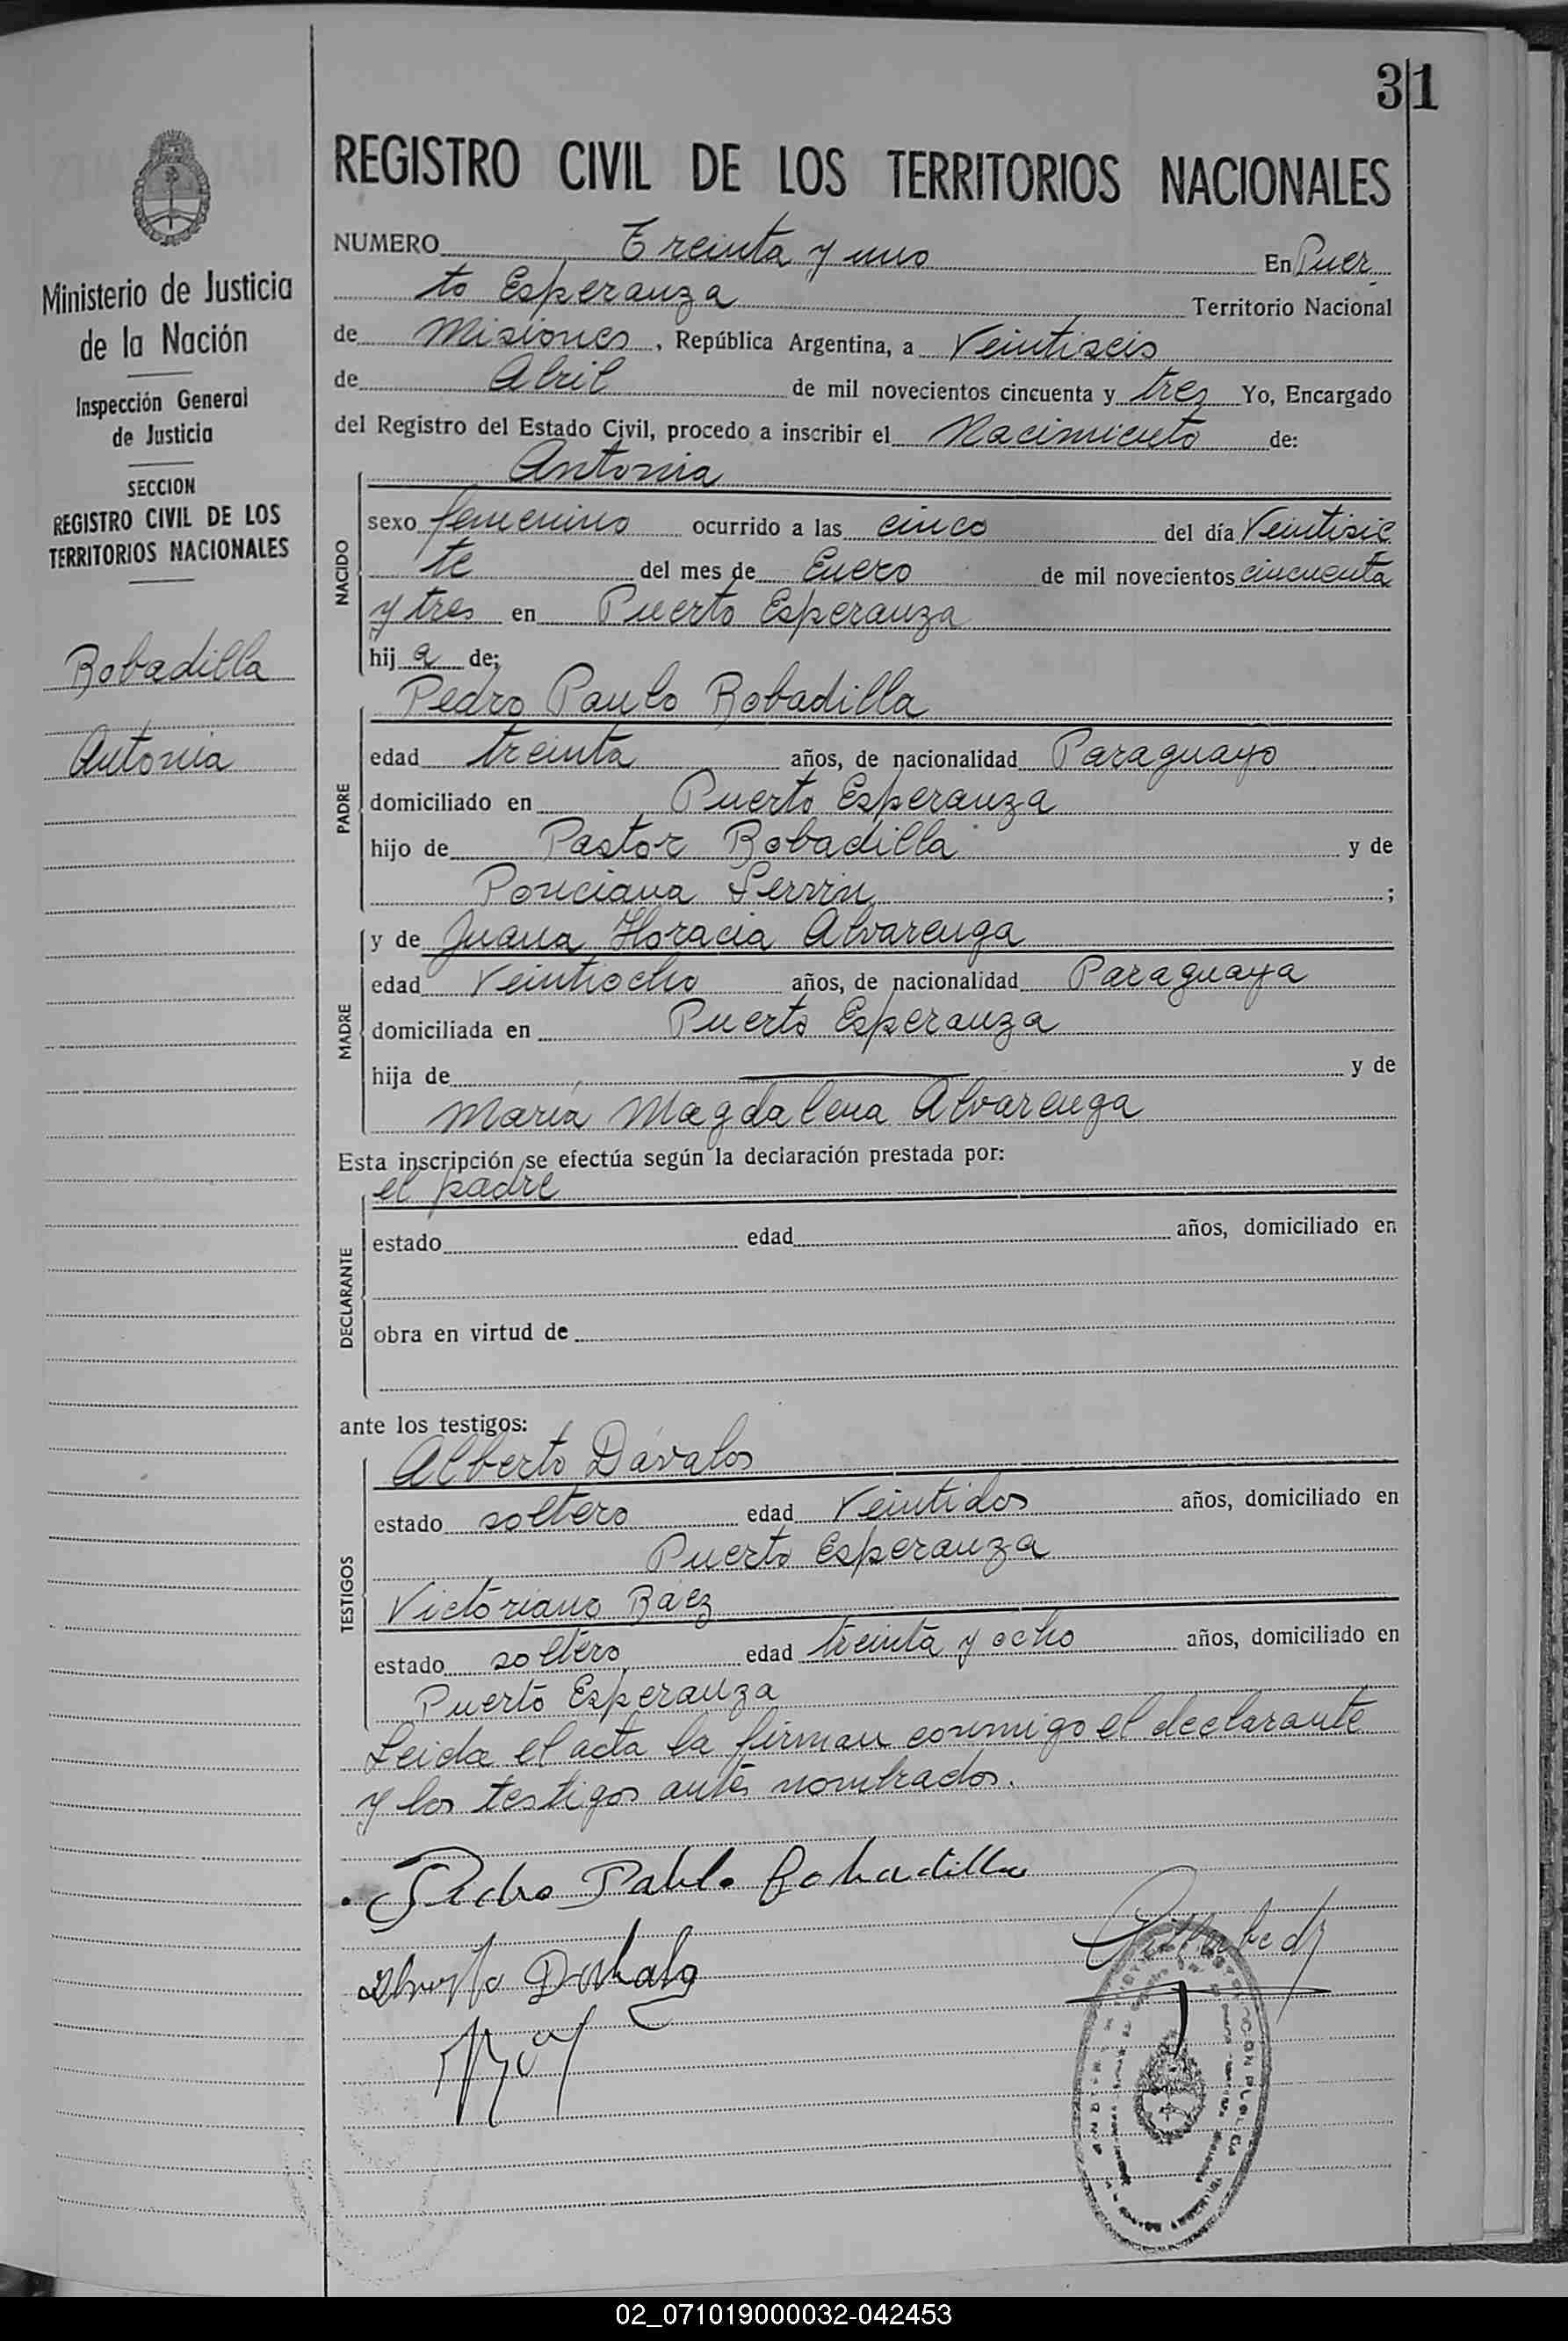 31
REGISTRO CIVIL DE LOS TERRITORIOS NACIONALES
Ministerio de Justicia
de la Nación
Inspección General
de Justicia
SECCION
REGISTRO CIVIL DE LOS
TERRITORIOS NACIONALES
Bobadilla
Antonia
NUMERO Treinta y uno En Puer
to Esperanza Territorio Nacional
de Misiones, República Argentina, a Veintiseis
de Abril de mil novecientos cincuenta y tres Yo, Encargado
del Registro del Estado Civil, procedo a inscribir el Nacimiento de:
NACIDO
Antonia
sexo femenino ocurrido a las cinco del día Veintisie
te del mes de Enero de mil novecientos cincuenta
y tres en Puerto Esperanza
hij a de;
PADRE
Pedro Paulo Bobadilla
edad treinta años, de nacionalidad Paraguayo
domiciliado en Puerto Esperanza
hijo de Pastor Bobadilla y de
Ponciana ;
MADRE
y de Juana Horacia Alvarenga
edad Veintiocho años, de nacionalidad Paraguaya
domiciliada en Puerto Esperanza
hija de y de
María Magdalena Alvarenga
Esta inscripción se efectúa según la declaración prestada por:
DECLARANTE
el padre
estado edad años, domiciliado en
obra en virtud de
ante los testigos:
TESTIGOS
Alberto Dávalos
estado soltero edad Veintidos años, domiciliado en
Puerto Esperanza
Victoriano Báez
estado soltero edad treinta y ocho años, domiciliado en
Puerto Esperanza
Leida el acta la firman conmigo el declarante
y los testigos antes nombrados.
Pedro Pablo Bobadilla
02_071019000032-042453